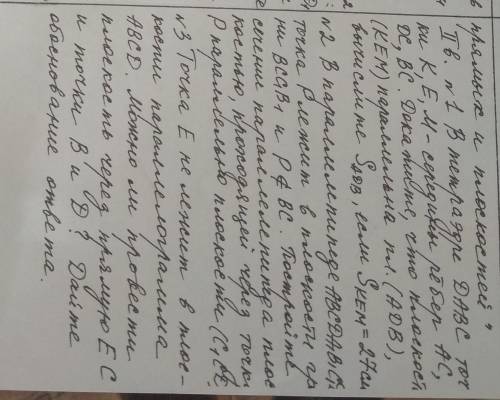 прямых и плоскостей"
II в. №1 В тетраэдре DABC точ
ки K, E, M - середины рёбер AC,
DC, BC. Докажите, что плоскость
(KEM) параллельна пл. (ADB),
вычислите SADB, если SKEM = 27см
№2 В параллелепипеде ABCDA1B1C1
точка P лежит в плоскости гр
ни BCC1B1 и P∉BC. Постройте
сечение параллелепипеда плос
костью, проходящей через точки
P параллельно плоскости
№3 Точка E не лежит в плос-
кости параллелограмма
ABCD. Можно ли провести
плоскость через прямую EC
и точки B и D? Дайте
обоснование ответа.